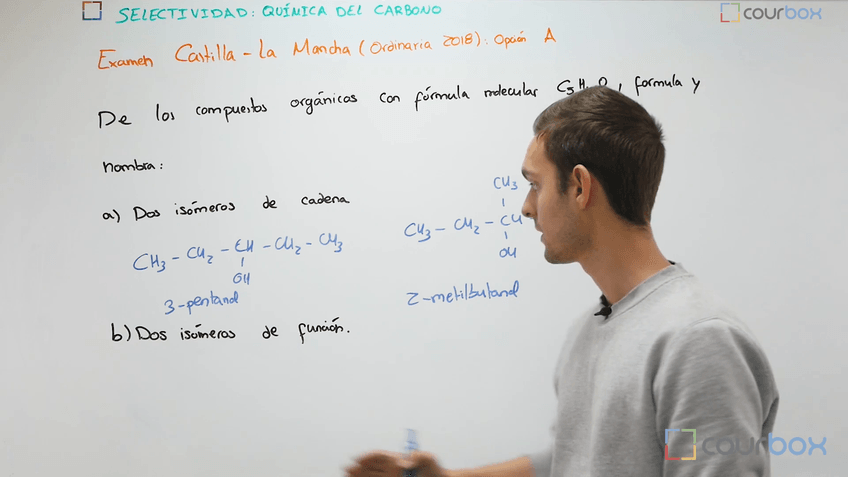 SELECTIVIDAD: QUÍMICA DEL CARBONO
courbox
Examen Castilla - La Mancha (Ordinaria 2018): Opción A
De los compuestos orgánicos con fórmula molecular , formula y
nombra:
a) Dos isómeros de cadena
CH3 - CH2 - CH - CH2 - CH3
OH
3-pentanol
CH3
CH3 - CH2 - CH
OH
2-metilbutanol
b) Dos isómeros de función.
courbox